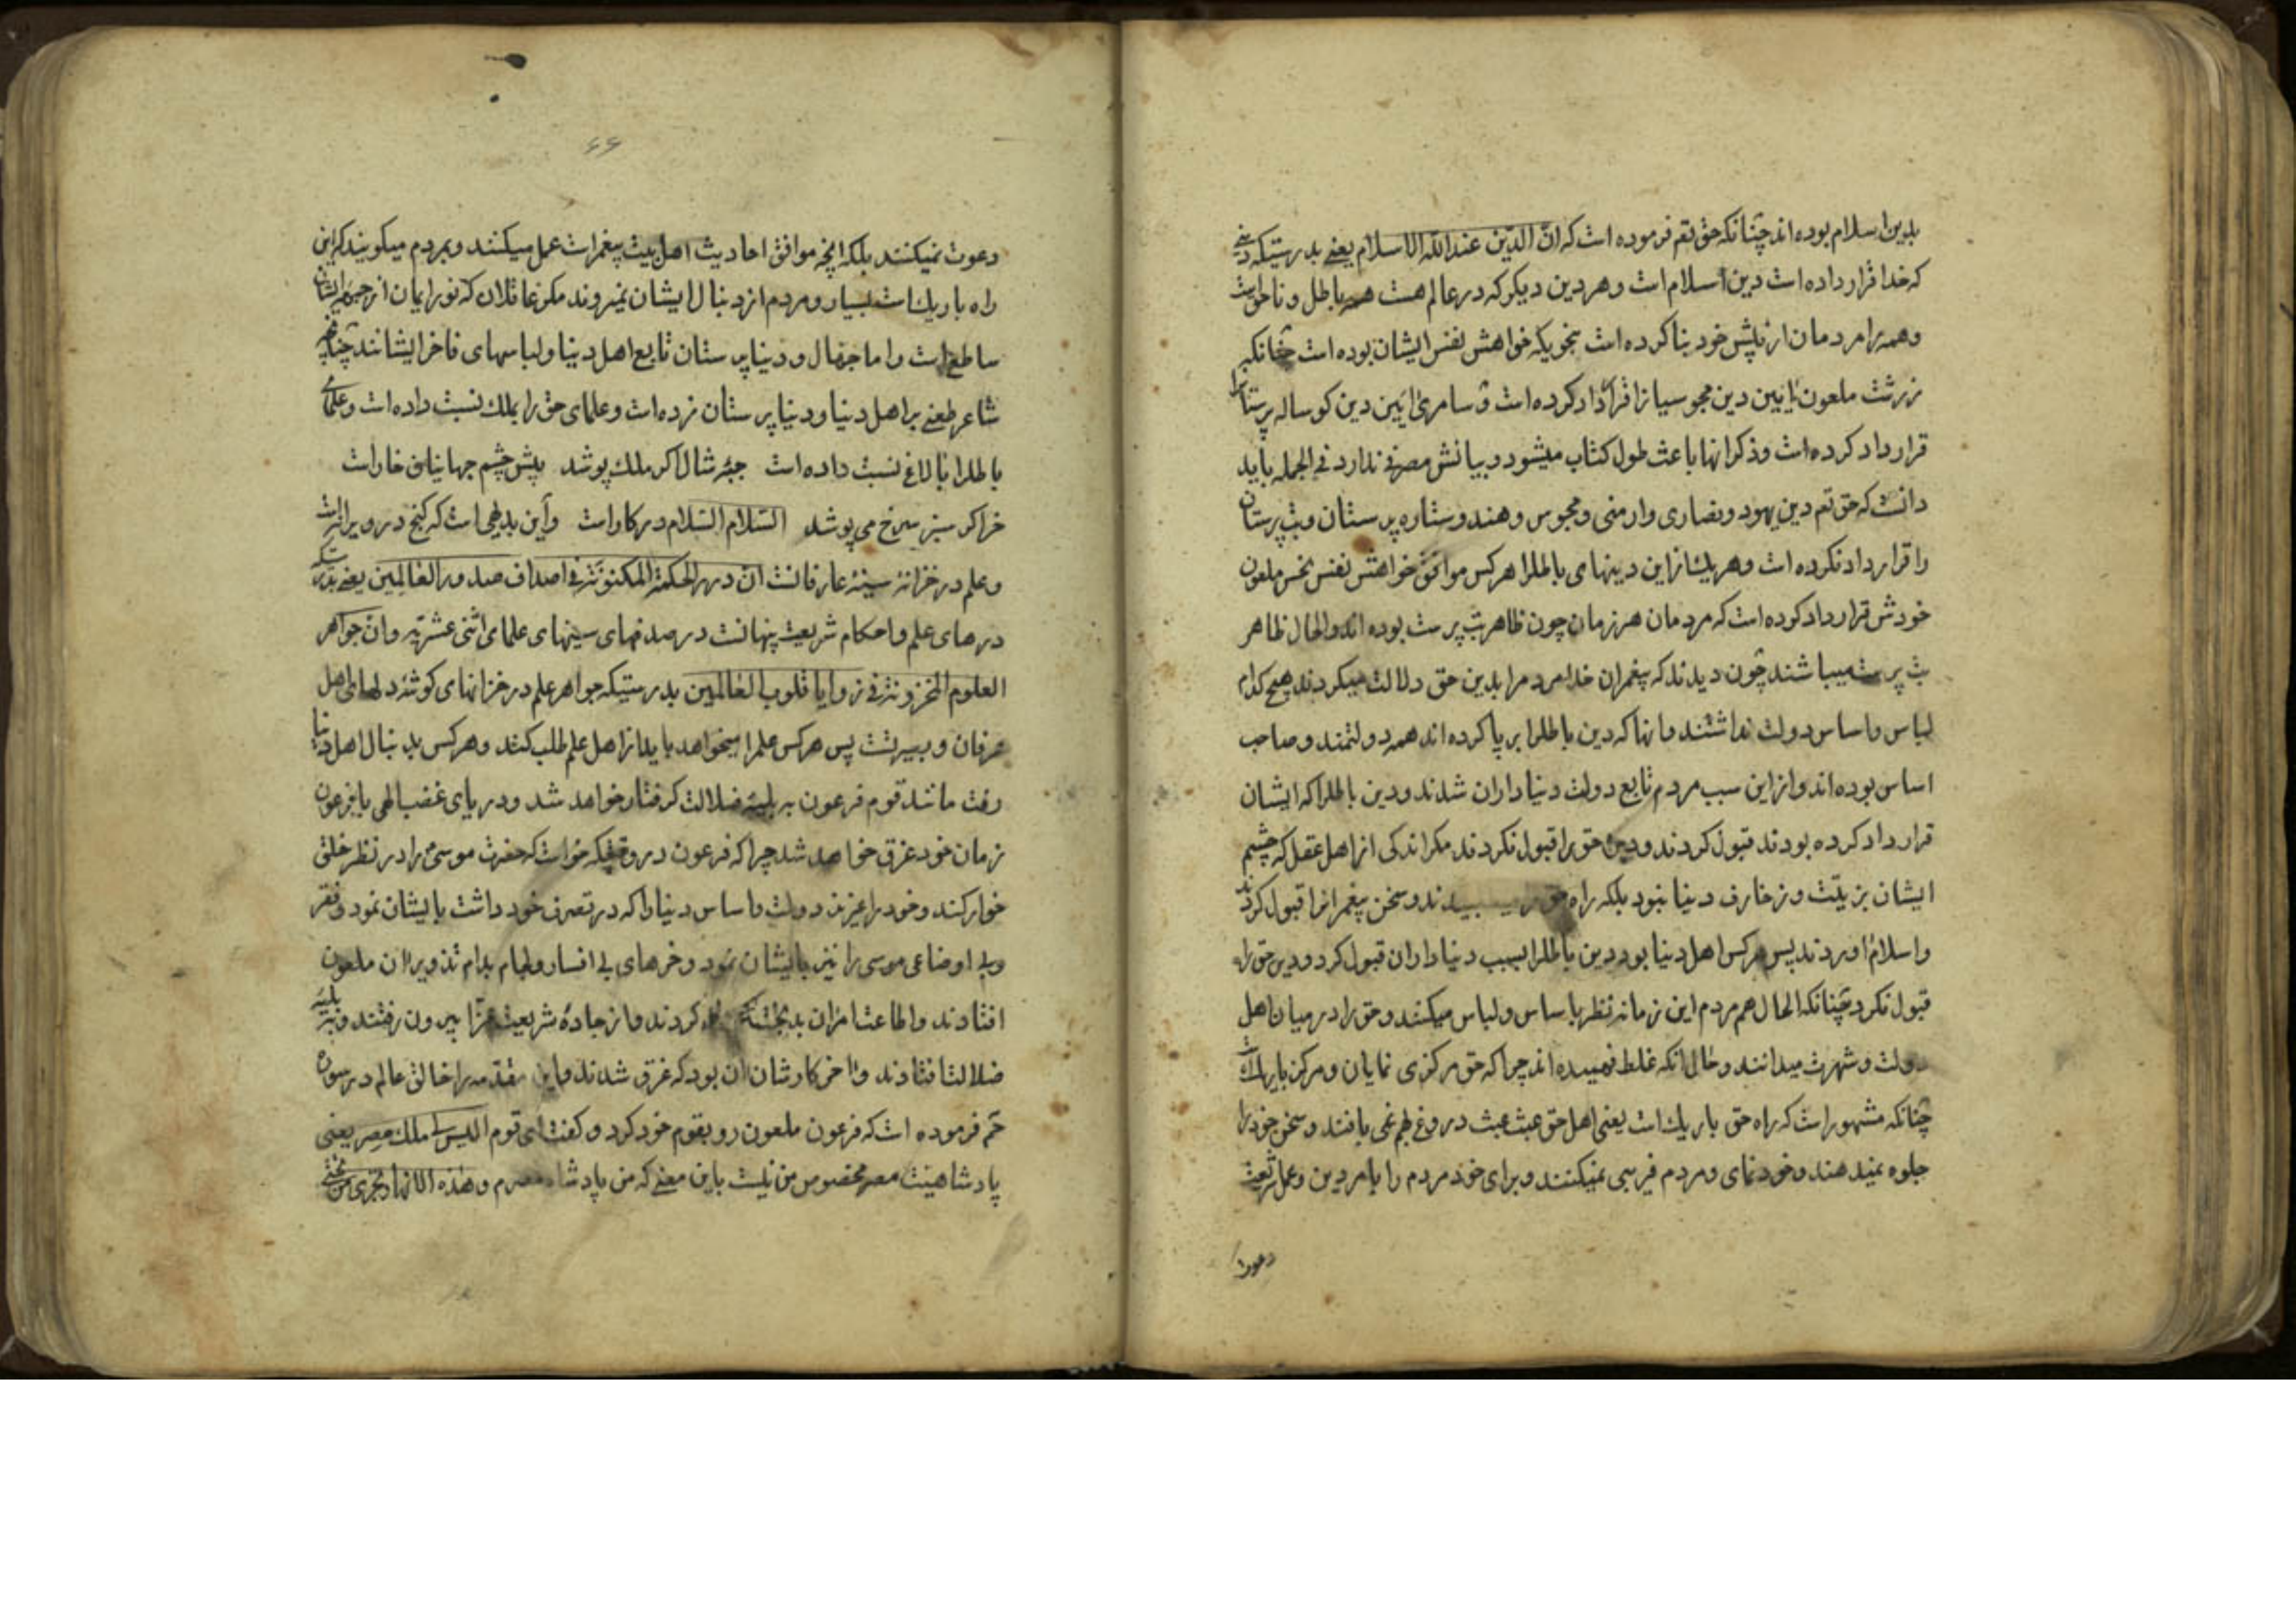 بدین اسلام بوده اند چنانکه حق تعم فرموده است که ان الدّین عند الله الاسلام یعنے بدرستیکه دینے
که خدا قرار داده است دین اسلام است و هر دین دیکر که در عالم هست همه باطل و ناحق است
و همه را مردمان از پیش خود بنا کرده است بنحویکه خواهش نفس ایشان بوده است چنانکه
زرتشت ملعون ایین دین مجوسیانرا قرار داد کرده است و سامری ایین دین کوساله پرستانرا
قرارداد کرده است و ذکر انها باعث طول کتاب میشود و بیانش مصرفے ندارد فی الجمله باید
دانست که حق تعم دین یهود و نصاری و ارمنی و مجوس و هند و ستاره پرستان و بت پرستان
را قرارداد نکرده است و هر یك از این دینهای باطلرا هر کس موافق خواهش نفس نحس ملعون
خودش قرارداد کرده است که مردمان هر زمان چون ظاهر بت پرست بوده اند و الحال ظاهر
بت پرست میباشند چون دیدند که پیغمران خدا مردم را بدین حق دلالت میکردند هیچ کدام
لباس و اساس دولت نداشتند و انها که دین باطلرا بر پا کرده اند همه دولتمند و صاحب
اساس بوده اند و از این سبب مردم تابع دولت دنیاداران شدند و دین باطلرا که ایشان
قرارداد کرده بودند قبول کردند و دین حق را قبول نکردند مکر اندکی از اهل عقل که چشم
ایشان بزینت و زخارف دنیا نبود بلکه راه حق دند و سخن پیغمرانرا قبول کردند
و اسلام اوردند پس هر کس اهل دنیا بود دین باطلرا بسبب دنیاداران قبول کرد و دین حق را
قبول نکرد چنانکه الحال هم مردم این زمانه نظر باساس و لباس میکنند و حق را در میان اهل
دولت و شهرت میدانند و حال انکه غلط فهمیده اند چرا که حق مرکزی نمایان و مرکز باریك است
چنانکه مشهور است که راه حق باریك است یعنی اهل حق عبث عبث دروغ بهم نمی بافند و سخن خود را
جلوه نمیدهند و خودنمای و مردم فریبی نمیکنند و برای خود مردم را بامر دین و عمل شریعت
دعوت
۶۶
دعوت نمیکنند بلکه انچه موافق احادیث اهل بیت پیغمر است عمل میکنند و بمردم میکویند که این
راه باریك است بسیار و مردم از دنبال ایشان نمیروند مکر عاقلان که نور ایمان از جبهه ایشان
ساطع است و اما جهال و دنیاپرستان تابع اهل دنیا و لباسهای فاخر ایشانند چنانچه
شاعر طعنے بر اهل دنیا و دنیاپرستان زده است و علمای حق را بملك نسبت داده است و علمای
باطلرا بالاغ نسبت داده است جبهٔ شال اکر ملك پوشد پیش چشم جهانیان خار است
خر اکر سبز سرخ می پوشد السّلام السّلام در کار است و این بدیهی است که کنج در ویرانه است
و علم در خزانهٔ سینهٔ عارفانست ان درر الحکمة المکنونة فے اصداف صدور العالمین یعنے بدرستیکه
درهای علم و احکام شریعت پنهانست در صدفهای سینهای علمای اثنی عشریه و ان جواهر
العلوم المخزونة فے زوایا قلوب العالمین بدرستیکه جواهر علم در خزانهای کوشهٔ دلهای اهل
عرفان و بصیرتست پس هر کس علم را میخواهد باید از اهل علم طلب کند و هر کس بدنبال اهل دنیا
رفت مانند قوم فرعون ببلیهٔ ضلالت کرفتار خواهد شد و در دریای غضب الهی با فرعون
زمان خود غرق خواهد شد چرا که فرعون در وقتیکه خواست که حضرت موسی را در نظر خلق
خوار کند و خود را عزیز دولت و اساس دنیا را که در تصرف خود داشت بایشان نمود و فقر
و بی اوضاعی موسی را نیز بایشان نمود و خرهای بی افسار و لجام بدام تذویر ان ملعون
افتادند و اطاعت امر ان بدبخت کردند و از جادهٔ شریعت غرّا بیرون رفتند و ببلیهٔ
ضلالت افتادند و اخر کارشان ان بود که غرق شدند و این مقدّمه را خالق عالم در سوره
حم فرموده است که فرعون ملعون رو بقوم خود کرد و کفت ای قوم الیس لی ملك مصر یعنی
پادشاهیت مصر مخصوص من نیست باین معنے که من پادشاه مصرم و هذه الانهار تجری من تحتی